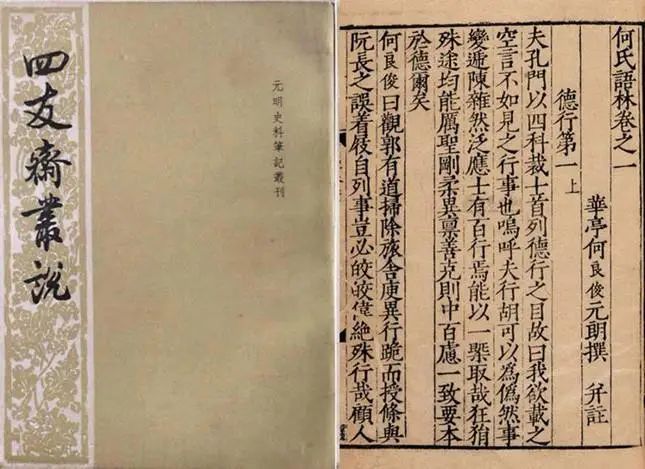 四友齋叢說
元明史料筆記叢刊
何氏語林卷之一
華亭何良俊元朗撰 幷註
德行第一上
夫孔門以四科裁士首列德行之目故曰我欲載之
空言不如見之行事也嗚呼夫行胡可以為僞然事
變遞陳雜然泛應士有百行焉能以一槩取哉狂狷
殊途均能厲聖剛柔異稟善克則中百慮一致要本
於德爾矣
何良俊曰觀郭有道掃除旅舍庾異行跪而授條與
阮長之誤着屐自列事豈必皎皎偉絶殊行哉顧人